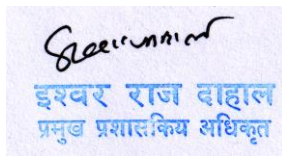 इश्वर राज दाहाल
प्रमुख प्रशासकिय अधिकृत